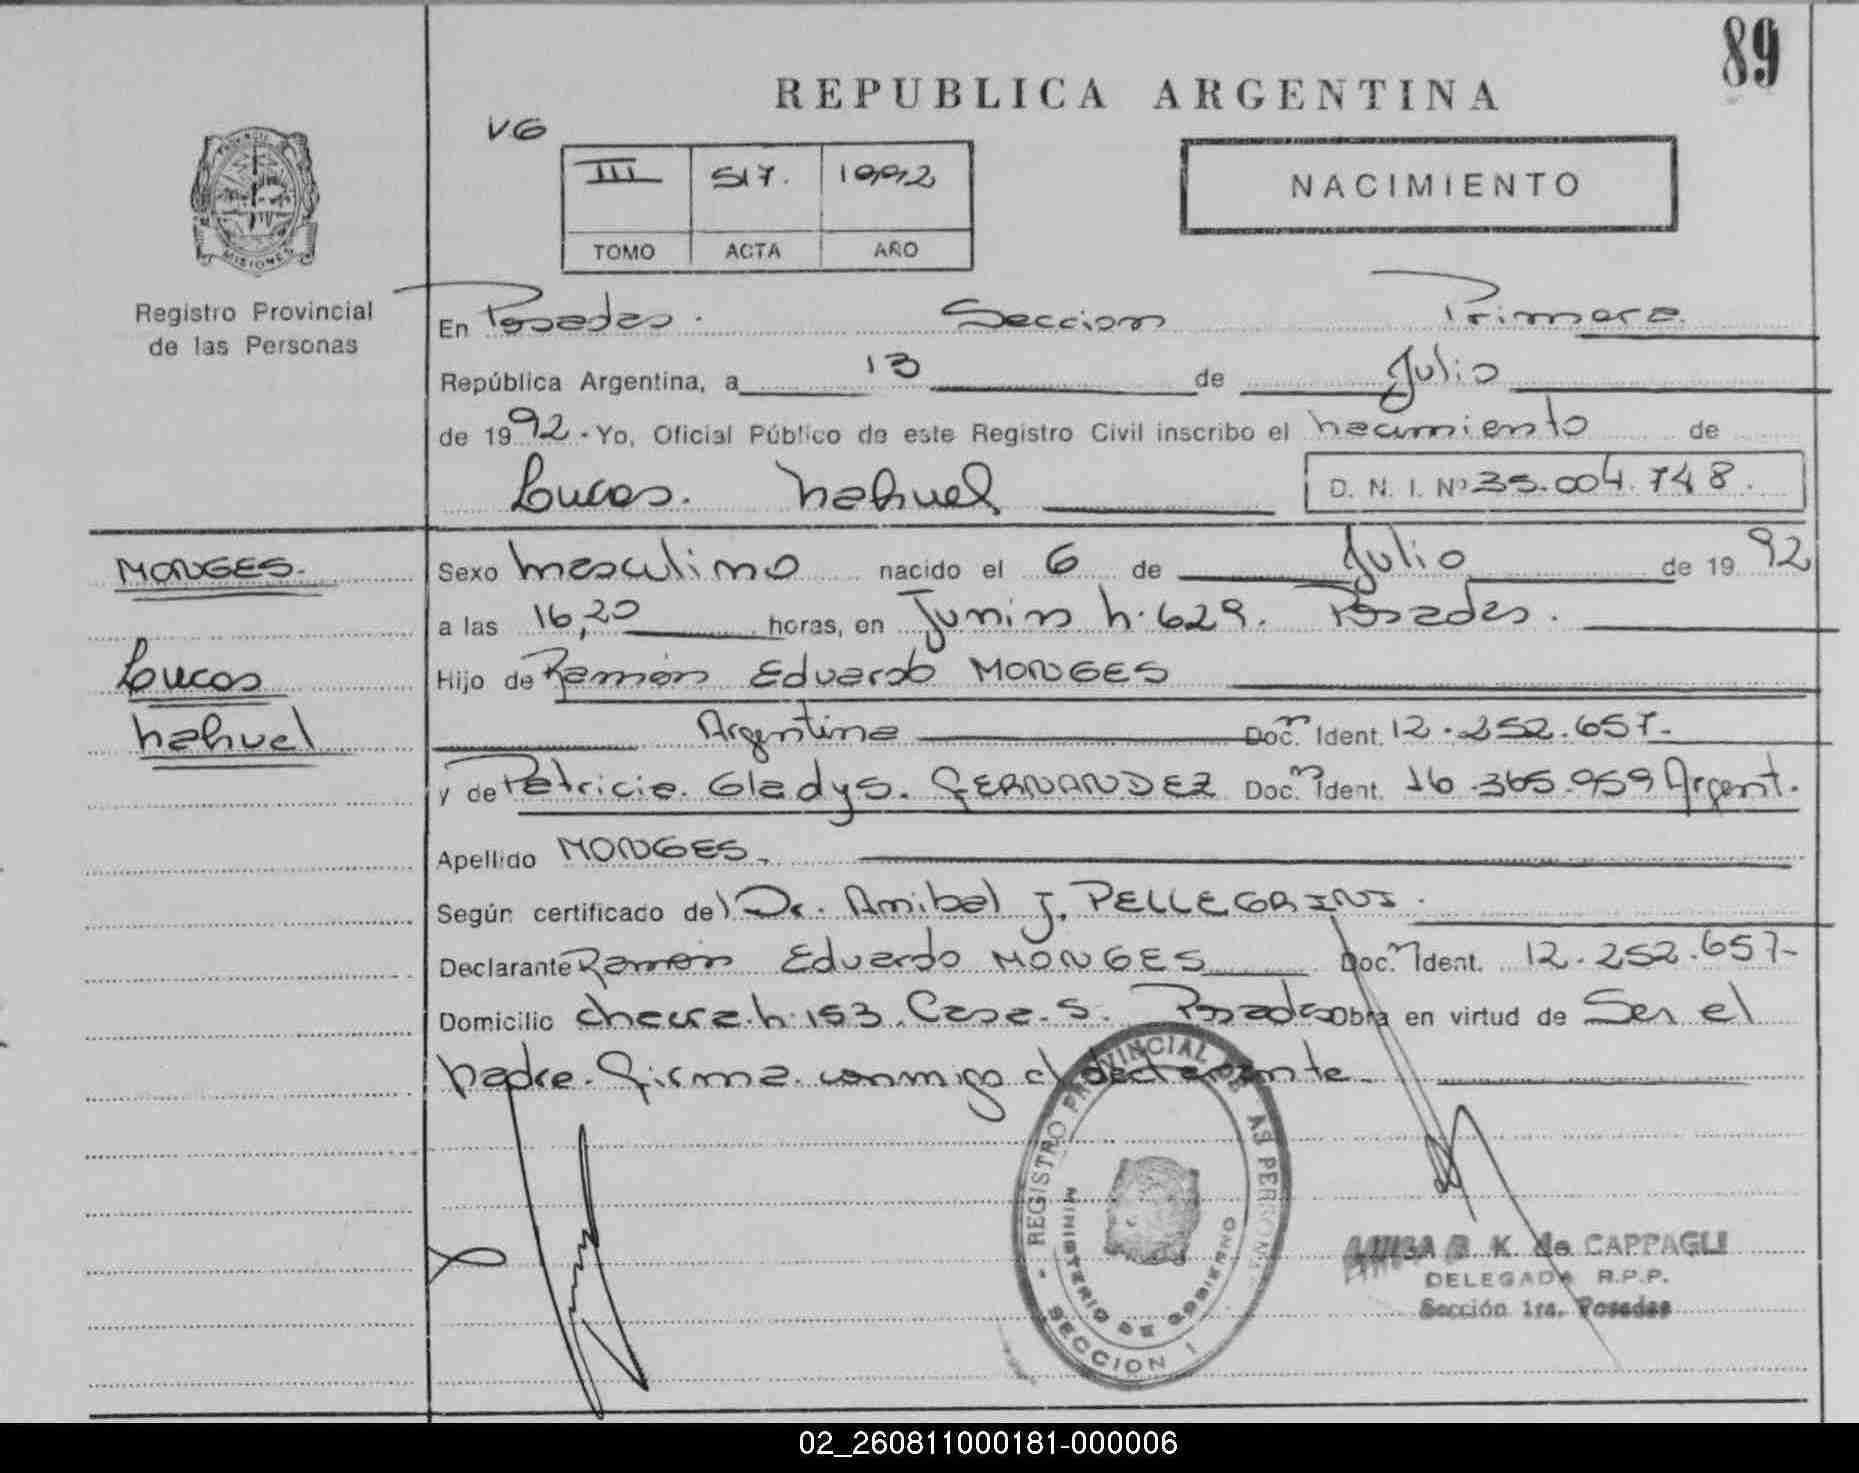 89
REPUBLICA ARGENTINA
VG
III 517. 1992
TOMO ACTA AÑO
NACIMIENTO
PROVINCIA MISIONES
Registro Provincial
de las Personas
En Posadas. Seccion Primera
República Argentina, a 13 de Julio
de 1992.- Yo, Oficial Público de este Registro Civil inscribo el nacimiento de
Lucas. Nahuel D. N. I. Nº 35.004.748.
MONGES.
Lucas
Nahuel
Sexo masculino nacido el 6 de Julio de 1992
a las 16,20 horas, en Junin N. 629. Posadas.
Hijo de Ramón Eduardo MONGES
Argentina Doc. n Ident. 12.252.657.-
y de Patricia. Gladys. FERNANDEZ Doc. n Ident. 16.365.959 Argent.
Apellido MONGES.
Según certificado del Dr. Anibal J. PELLEGRINI.
Declarante Ramón Eduardo MONGES Doc. n Ident. 12.252.657-
Domicilio chacra. N. 153. Casa. 5. Posadas Obra en virtud de Ser el
padre. Firma. conmigo el declarante.
REGISTRO PROVINCIAL DE LAS PERSONAS
MINISTERIO DE GOBIERNO
SECCION 1
B. K. de CAPPAGLI
DELEGADA R.P.P.
Sección 1ra. Posadas
02_260811000181-000006